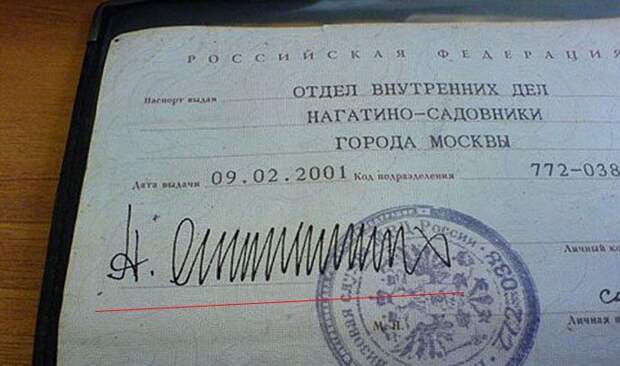 РОССИЙСКАЯ ФЕДЕРАЦИЯ
Паспорт выдан ОТДЕЛ ВНУТРЕННИХ ДЕЛ
НАГАТИНО-САДОВНИКИ
ГОРОДА МОСКВЫ
Дата выдачи 09.02.2001 Код подразделения 772-038
Личный
М. П.
Личная